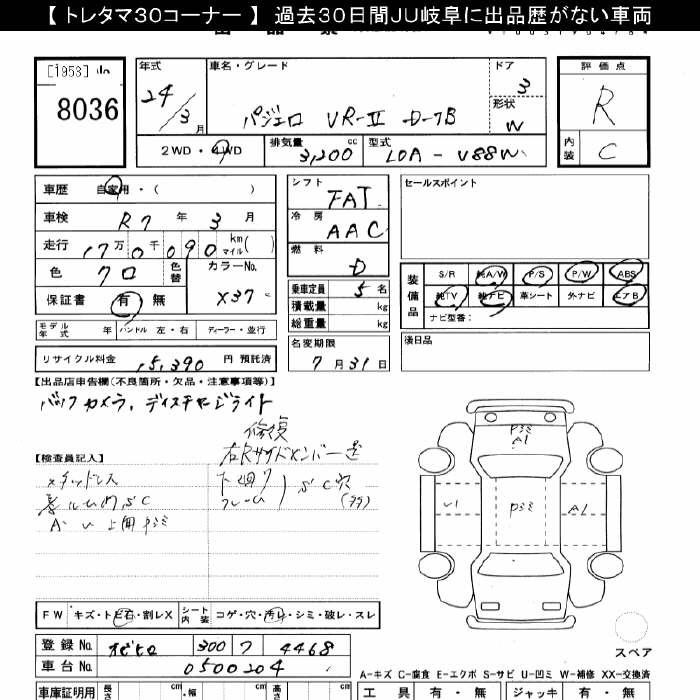 【 トレタマ３０コーナー 】 過去３０日間ＪＵ岐阜に出品歴がない車両
[1953]
8036
年式 24/3月
車名・グレード パジェロ VR-Ⅱ D-7B
ドア 3
形状 W
2WD・4WD
排気量 3,200 cc
型式 LDA - V88W
評価点 R
内装 C
車歴 自家用・( )
車検 R7 年 3 月
走行 17万0千090 km マイル( )
色 クロ 色替
カラーNo. X37
保証書 有 無
モデル年式 年 ハンドル 左・右 ディーラー・並行
リサイクル料金 15,390 円 預託済
シフト FAT
冷房 AAC
燃料 D
乗車定員 5 名
積載量 kg
総重量 kg
名変期限
7 月 31 日
セールスポイント
装備品
S/R 純A/W P/S P/W ABS
純TV 純ナビ 革シート 外ナビ エアB
ナビ型番：
後日品
【出品店申告欄(不良箇所・欠品・注意事項等)】
バックカメラ, ディスチャージライト
修復
右Rサイドメンバー
【検査員記入】
スタッドレス
下廻り
フレーム
S C穴
A・U 上用キズ
P3ミ
A1
U1
P3ミ
A1
FW キズ・トビ石・割レX シート内装 コゲ・穴・汚レ・シミ・破レ・スレ
登録No. オビヒロ 300 フ 4468
車台No. 0500204
スペア
A-キズ C-腐食 E-エクボ S-サビ U-凹ミ W-補修 XX-交換済
車庫証明用 長さ cm 幅 cm 高さ cm
工具 有・無 ジャッキ 有・無